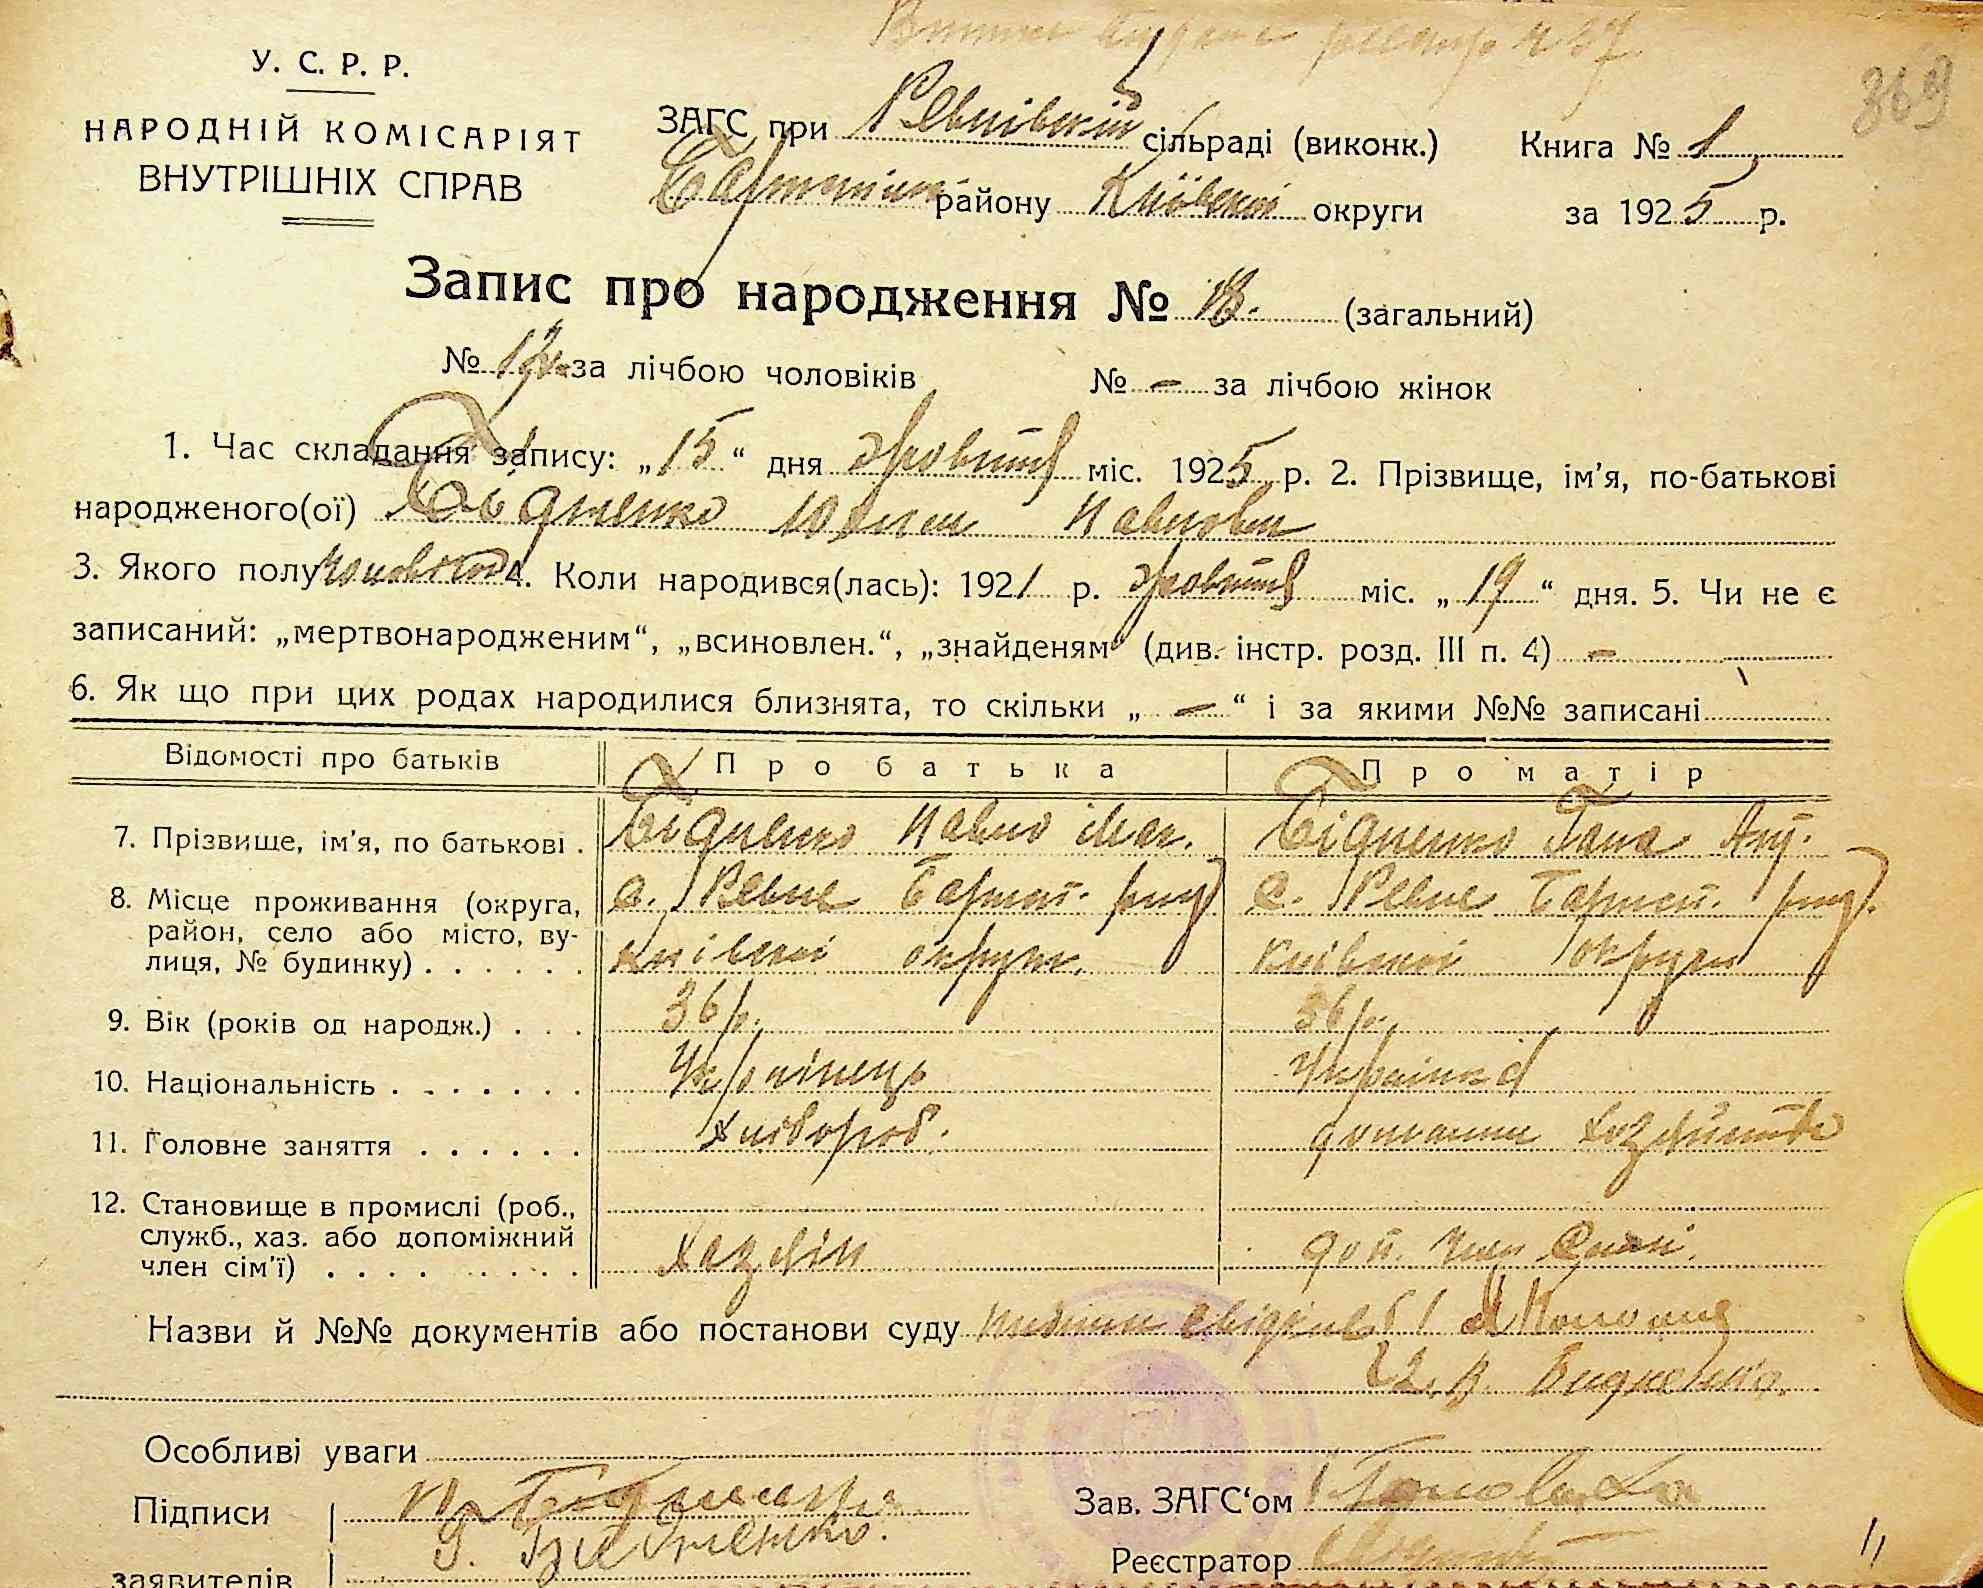 369
У. С. Р. Р.
НАРОДНІЙ КОМІСАРІЯТ
ВНУТРІШНІХ СПРАВ
ЗАГС при Ревнівській сільраді (виконк.) Книга № 1
району Київської округи за 1925 р.
Запис про народження № 18. (загальний)
№ за лічбою чоловіків № — за лічбою жінок
1. Час складання запису: „15“ дня жовтня міс. 1925 р. 2. Прізвище, ім'я, по-батькові
народженого(ої) Бідненко Павлов
3. Якого полу чоловочого 4. Коли народився(лась): 1921 р. жовтня міс. „19“ дня. 5. Чи не є
записаний: „мертвонародженим“, „всиновлен.“, „знайденям“ (див. інстр. розд. III п. 4) —
6. Як що при цих родах народилися близнята, то скільки „ — “ і за якими №№ записані
Відомості про батьків Про батька Про матір
7. Прізвище, ім'я, по батькові . Бідненко Павло Бідненко Гана
8. Місце проживання (округа, с. Ревне Баришп. рай с. Ревне Барисп. рай.
район, село або місто, ву-
лиця, № будинку) . . . . . . Київскої округи. Київської округи
9. Вік (років од народж.) . . . 36 р. 36 р.
10. Національність . . . . . . . Українець Українка
11. Головне заняття . . . . . . Хлібороб. домашнє хозяйство
12. Становище в промислі (роб.,
служб., хаз. або допоміжний
член сім'ї) . . . . . . . . . Хазяїн доп. член сімї.
Назви й №№ документів або постанови суду
Бидненко.
Особливі уваги
Підписи Зав. ЗАГС‘ом
Г. Бидненко.
заявителів Реєстратор